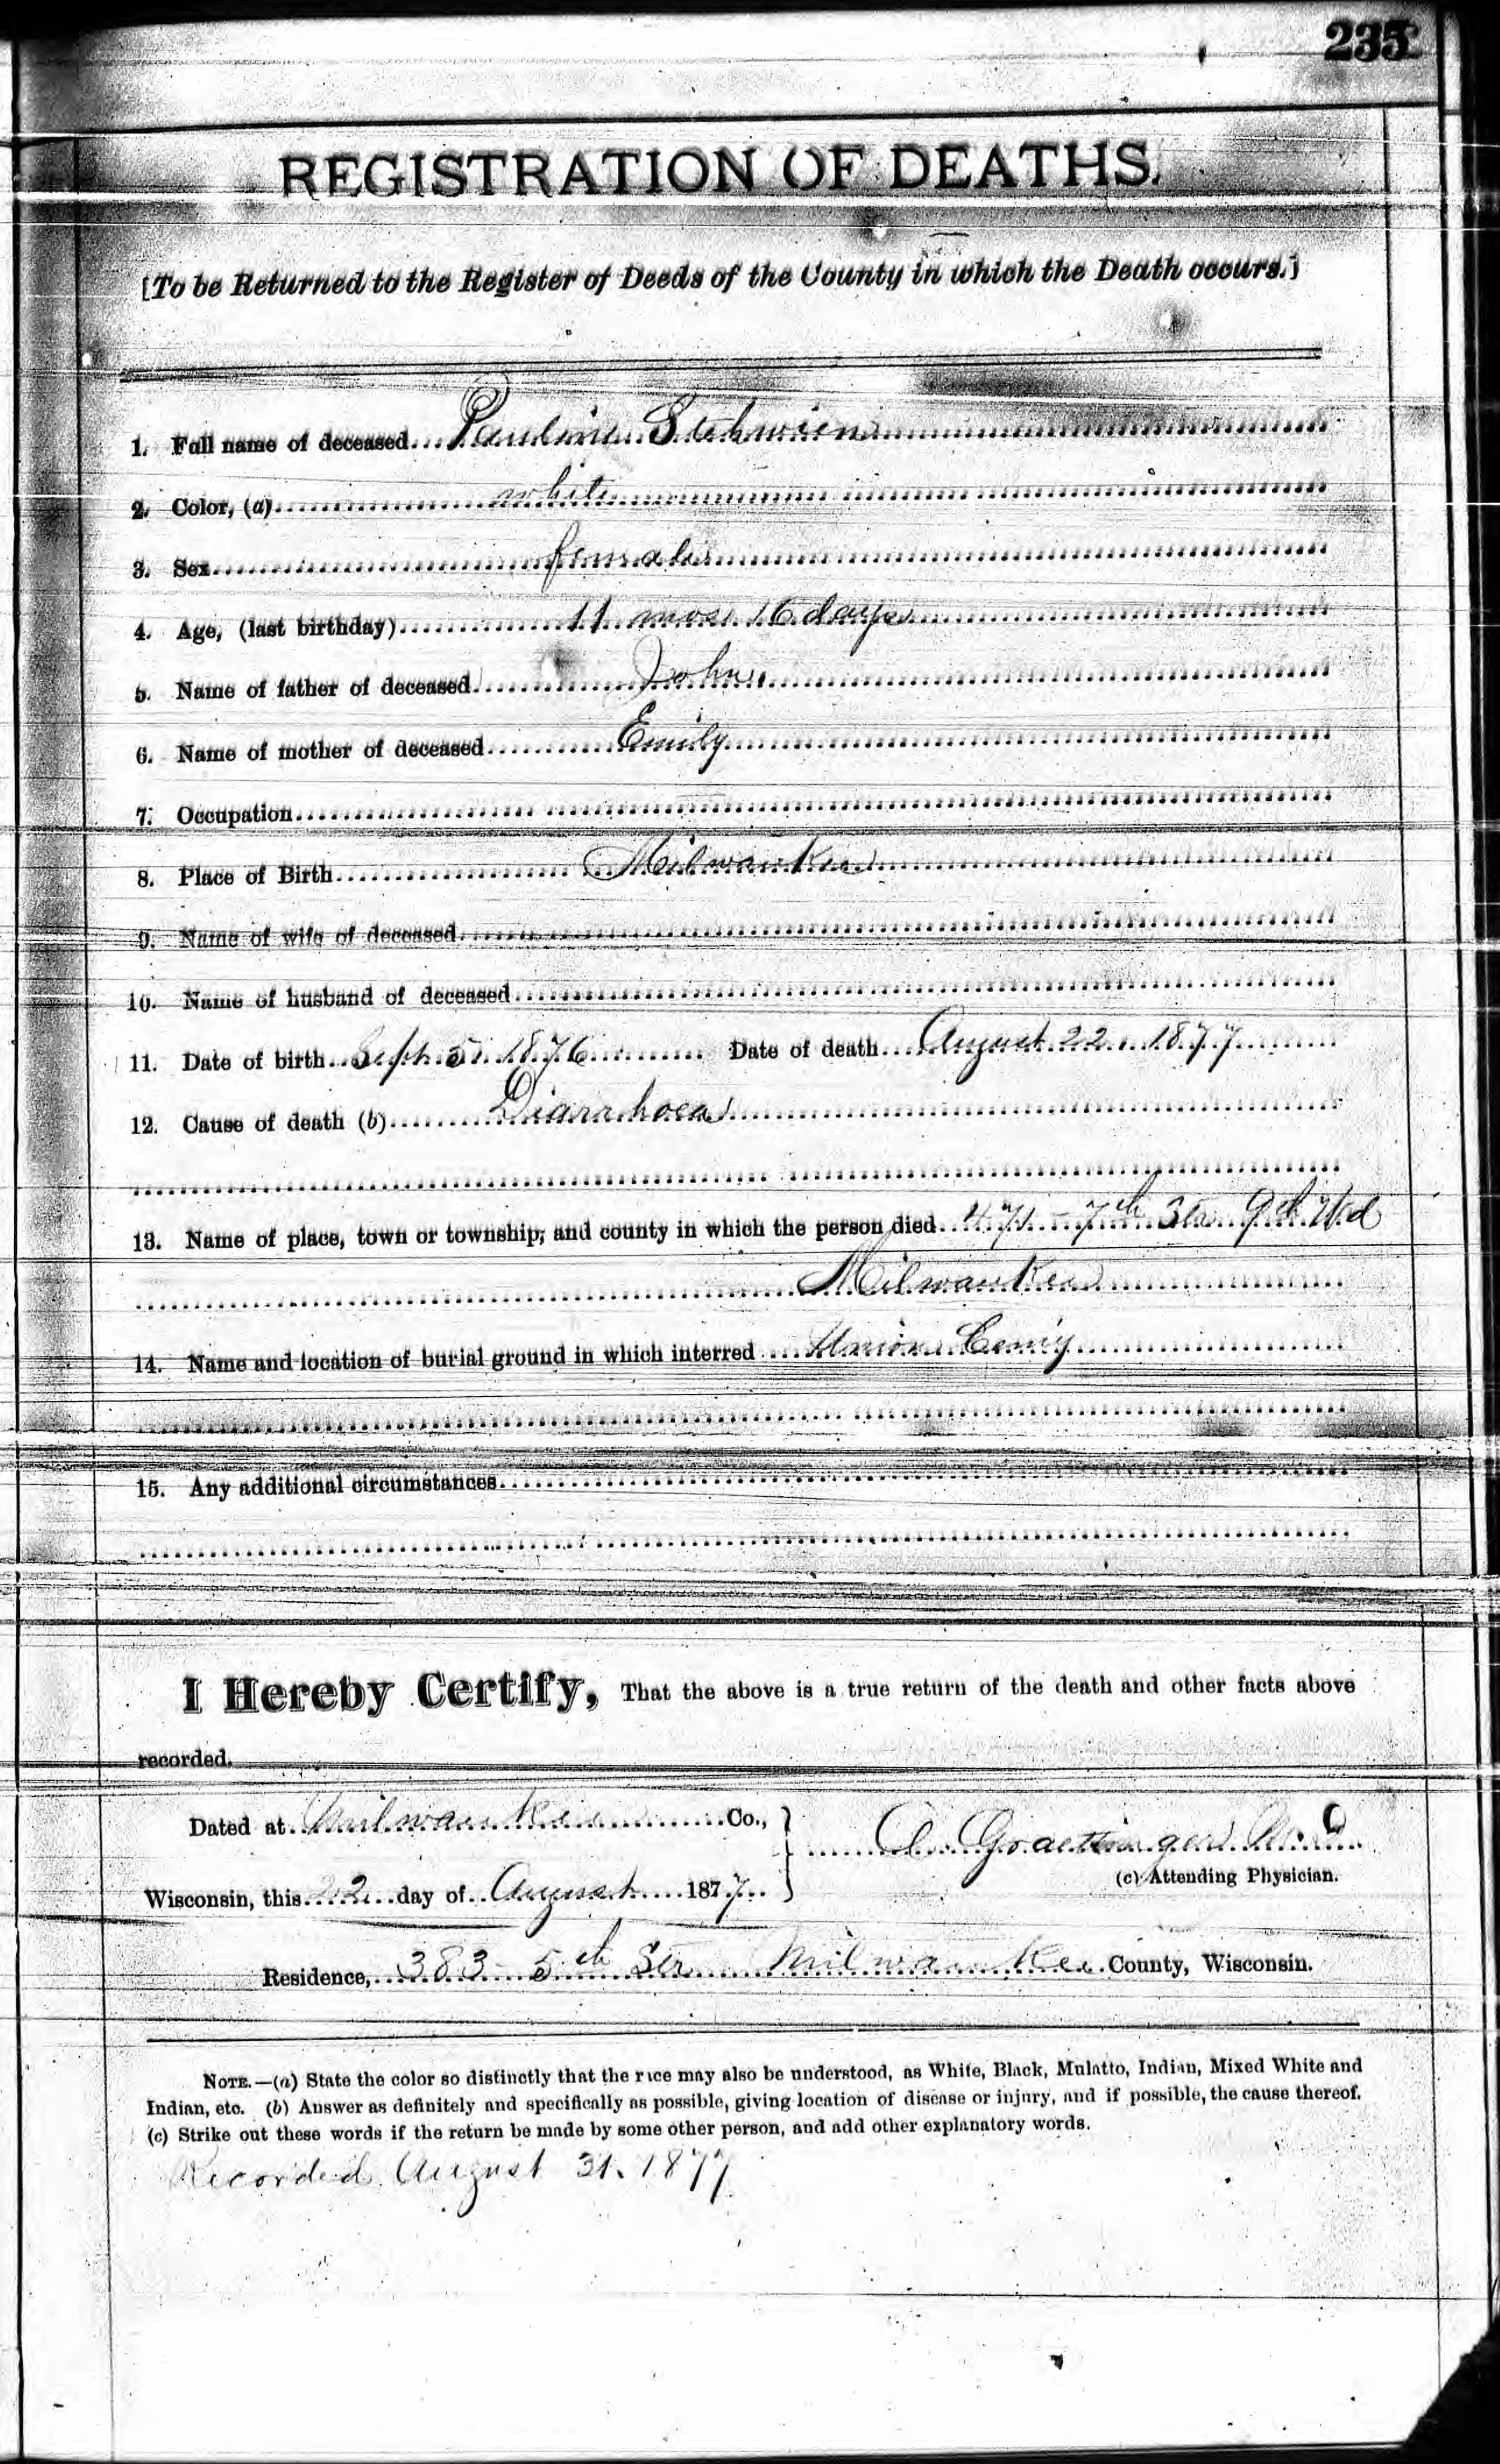 235
REGISTRATION OF DEATHS.
[To be Returned to the Register of Deeds of the County in which the Death occurs.]
1. Full name of deceased Pauline Stehwien
2. Color, (a) white
3. Sex female
4. Age, (last birthday) 11 mos. 16 days
5. Name of father of deceased John
6. Name of mother of deceased Emily
7. Occupation
8. Place of Birth Milwaukee
9. Name of wife of deceased
10. Name of husband of deceased
11. Date of birth Sept. 5. 1876 Date of death August 22. 1877
12. Cause of death (b) Diarrhoea
13. Name of place, town or township, and county in which the person died 471 - 7th Str 9th Wd
Milwaukee
14. Name and location of burial ground in which interred Union Cem'y
15. Any additional circumstances
I Hereby Certify, That the above is a true return of the death and other facts above
recorded.
Dated at Milwaukee Co., } C. Graettinger M.D.
(c) Attending Physician.
Wisconsin, this 22 day of August 1877
Residence, 383 - 5th Str Milwaukee County, Wisconsin.
NOTE.—(a) State the color so distinctly that the race may also be understood, as White, Black, Mulatto, Indian, Mixed White and
Indian, etc. (b) Answer as definitely and specifically as possible, giving location of disease or injury, and if possible, the cause thereof.
(c) Strike out these words if the return be made by some other person, and add other explanatory words.
Recorded August 31. 1877